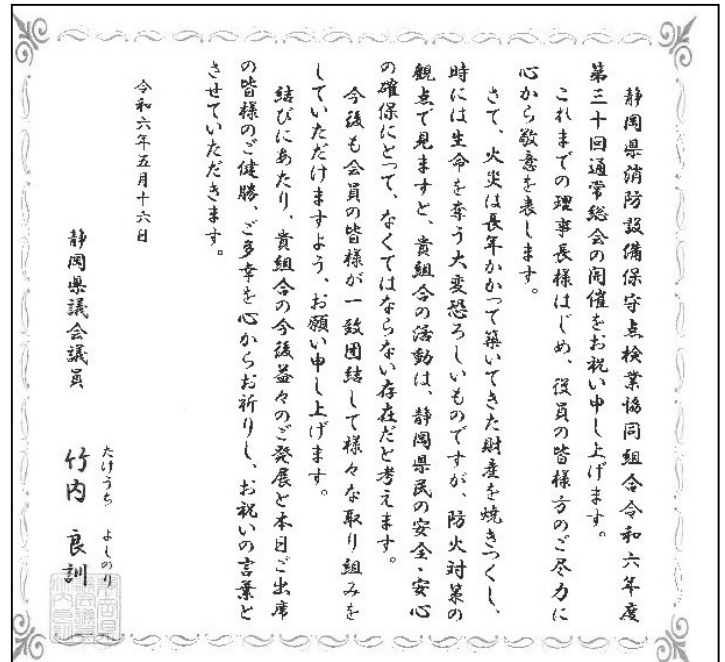 静岡県消防設備保守点検業協同組合令和六年度
第三十回通常総会の開催をお祝い申し上げます。
これまでの理事長様はじめ、役員の皆様方のご尽力に
心から敬意を表します。
さて、火災は長年かかって築いてきた財産を焼きつくし、
時には生命を奪う大変恐ろしいものですが、防火対策の
観点で見ますと、貴組合の活動は、静岡県民の安全・安心
の確保にとって、なくてはならない存在だと考えます。
今後も会員の皆様が一致団結して様々な取り組みを
していただけますよう、お願い申し上げます。
結びにあたり、貴組合の今後益々のご発展と本日ご出席
の皆様のご健勝、ご多幸を心からお祈りし、お祝いの言葉と
させていただきます。
令和六年五月十六日
静岡県議会議員
たけうち よしのり
竹内 良訓